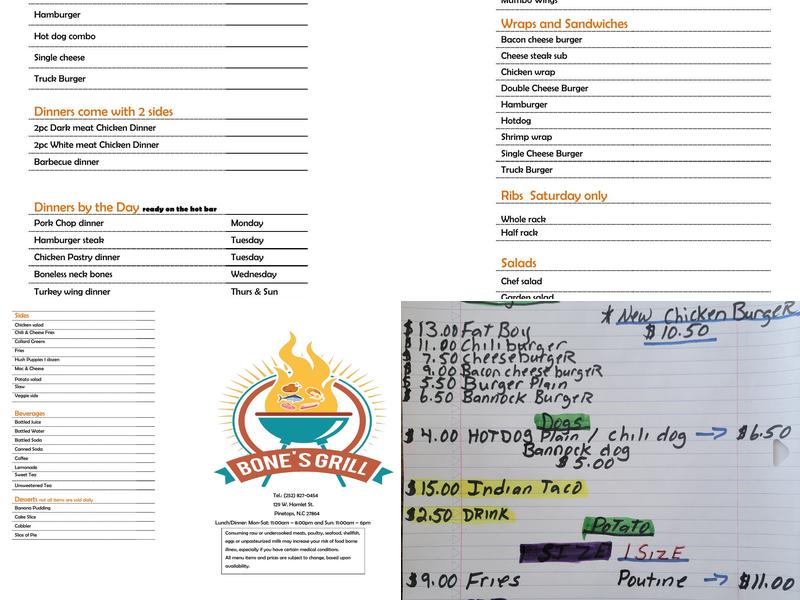 Hamburger
Hot dog combo
Single cheese
Truck Burger
Dinners come with 2 sides
2pc Dark meat Chicken Dinner
2pc White meat Chicken Dinner
Barbecue dinner
Dinners by the Day ready on the hot bar
Pork Chop dinner Monday
Hamburger steak Tuesday
Chicken Pastry dinner Tuesday
Boneless neck bones Wednesday
Turkey wing dinner Thurs & Sun
Mumbo Wings
Wraps and Sandwiches
Bacon cheese burger
Cheese steak sub
Chicken wrap
Double Cheese Burger
Hamburger
Hotdog
Shrimp wrap
Single Cheese Burger
Truck Burger
Ribs Saturday only
Whole rack
Half rack
Salads
Chef salad
Garden salad
Sides
Chicken salad
Chili & Cheese Fries
Collard Greens
Fries
Hush Puppies 1 dozen
Mac & Cheese
Potato salad
Slaw
Veggie side
Beverages
Bottled Juice
Bottled Water
Bottled Soda
Canned Soda
Coffee
Lemonade
Sweet Tea
Unsweetened Tea
Desserts not all items are sold daily
Banana Pudding
Cake Slice
Cobbler
Slice of Pie
BONE'S GRILL
Tel: (252) 827-0454
129 W. Hamlet St.
Pinetops, N.C 27864
Lunch/Dinner: Mon-Sat: 11:00am – 8:00pm and Sun: 11:00am – 6pm
Consuming raw or undercooked meats, poultry, seafood, shellfish,
eggs or unpasteurized milk may increase your risk of food borne
illness, especially if you have certain medical conditions.
All menu items and prices are subject to change, based upon
availability.
* New Chicken BurgeR
$10.50
$13.00 Fat Boy
$11.00 Chili burger
$7.50 cheeseburgeR
$9.00 Bacon cheese burgeR
$5.50 Burger Plain
$6.50 Bannock BurgeR
Dogs
$4.00 HOTDOG Plain / chili dog → $6.50
Bannock dog
$5.00
$15.00 Indian Taco
$2.50 DRINK
Potato
1 SIZE 1 SIZE
$9.00 Fries Poutine → $11.00